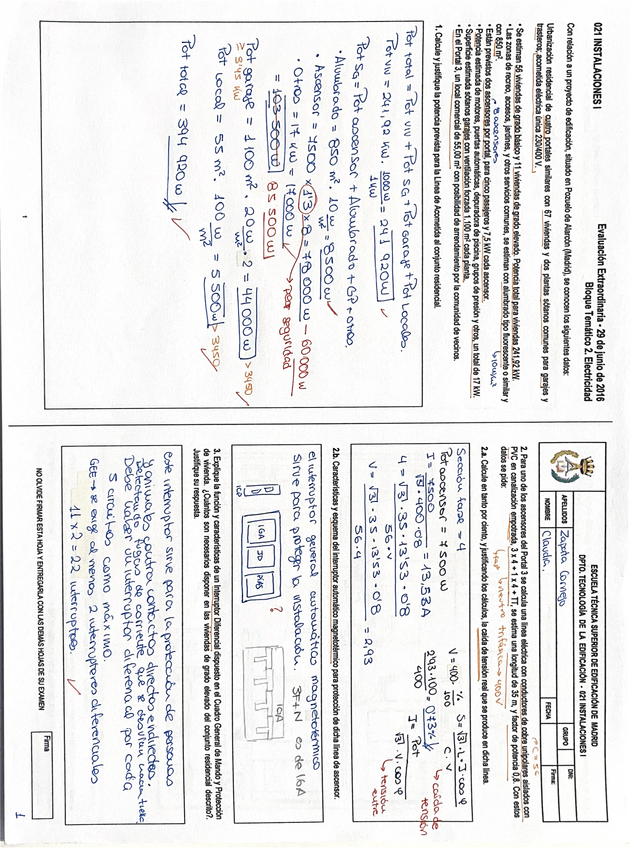 021 INSTALACIONES I
Evaluación Extraordinaria - 29 de junio de 2016
Bloque Temático 2. Electricidad
Con relación a un proyecto de edificación, situado en Pozuelo de Alarcón (Madrid), se conocen los siguientes datos:
Urbanización residencial de cuatro portales similares con 67 viviendas y dos plantas sótanos comunes para garajes y
trasteros; acometida eléctrica única 230/400 V.
• Se estiman 56 viviendas de grado básico y 11 viviendas de grado elevado. Potencia total para viviendas 241,92 kW.
• Las zonas de recreo, accesos, jardines, y otros servicios comunes, se estiman con alumbrado tipo fluorescente o similar y
con 850 m².
→ 10w/m²
→ 8 ascensores
• Están previstos dos ascensores por portal, para cinco pasajeros y 7,5 kW cada ascensor.
• Potencia estimada de motores, puertas automáticas, depuradora de piscina, grupos de presión y otros, un total de 17 kW.
• Superficie estimada sótanos garajes con ventilación forzada 1.100 m² cada planta.
• En el Portal 3, un local comercial de 55,00 m² con posibilidad de arrendamiento por la comunidad de vecinos.
1. Calcule y justifique la potencia prevista para la Línea de Acometida al conjunto residencial.
Pot total = Pot viv + Pot SG + Pot garaje + Pot Locales.
Pot viv = 241,92 kW. 1000w/1kW = 241 920w
Pot SG = Pot ascensor + Alumbrado + GP + otros
• Alumbrado = 850 m². 10 w/m² = 8500w
• Ascensor = 7500 x 1'3 x 8 = 78 000w - 60 000w
• Otros = 17 kW = 17000w → por seguridad
= 103 500w 85 500w
Pot garaje = 1100 m². 20w/m². 2 = 44 000w > 3450
≥ 3'45 kW
Pot local = 55 m². 100w/m² = 5 500w > 3450
Pot total = 394 920w
1
ESCUELA TÉCNICA SUPERIOR DE EDIFICACIÓN DE MADRID
DPTO. TECNOLOGÍA DE LA EDIFICACIÓN - 021 INSTALACIONES I
APELLIDOS Zapata Cornejo GRUPO DNI:
NOMBRE Claudia. FECHA Firma:
2. Para uno de los ascensores del Portal 3 se calcula una línea eléctrica con conductores de cobre unipolares aislados con
PVC en canalización empotrada, 3 x 4 + 1 x 4 + TT, se estima una longitud de 35 m, y factor de potencia 0,8. Con estos
datos se pide:
2.a. Calcule en tanto por ciento, y justificando los cálculos, la caída de tensión real que se produce en dicha línea.
Sección fase = 4
Pot ascensor = 7500w
I = 7500 / √3 · 400 · 0'8 = 13,53A
4 = √3 · 35 · 13'53 · 0'8 / 56 · V
V = √3 · 35 · 13'53 · 0'8 / 56 · 4 = 2,93
V = 400 · % / 100 S = √3 · L · I · cos φ / C · V
2'93 · 100 / 400 = 0'73% → caída de tensión
I = Pot / √3 · V · cos φ
→ tensión entre
2.b. Características y esquema del interruptor automático magnetotérmico para protección de dicha línea de ascensor.
el interruptor general automático magnetotérmico
sirve para proteger la instalación. 3F+N es de 16A
IGA ID PIAS
?
16A
3. Explique la función y características de un Interruptor Diferencial dispuesto en el Cuadro General de Mando y Protección
de vivienda. ¿Cuántos son necesarios disponer en las viviendas de grado elevado del conjunto residencial descrito?.
Justifique su respuesta.
este interruptor sirve para la protección de personas
y animales contra contactos directos e indirectos.
Detectando fugas de corriente que se desvían hacia tierra
Debe haber un interruptor diferencial por cada
5 circuitos como máximo.
GEE → se exige al menos 2 interruptores diferenciales
11 x 2 = 22 interruptores.
NO OLVIDE FIRMAR ESTA HOJA Y ENTREGARLA CON LAS DEMÁS HOJAS DE SU EXAMEN
Firma
1